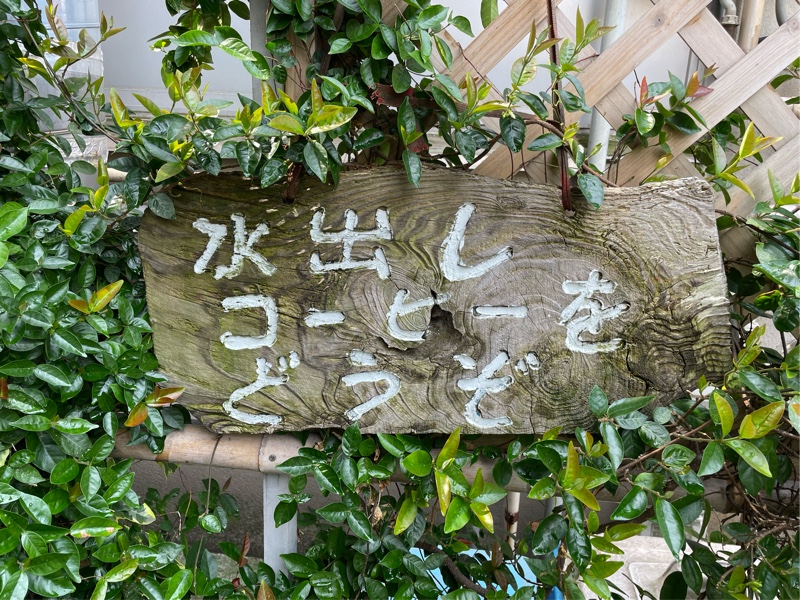 水出し
コーヒーを
どうぞ